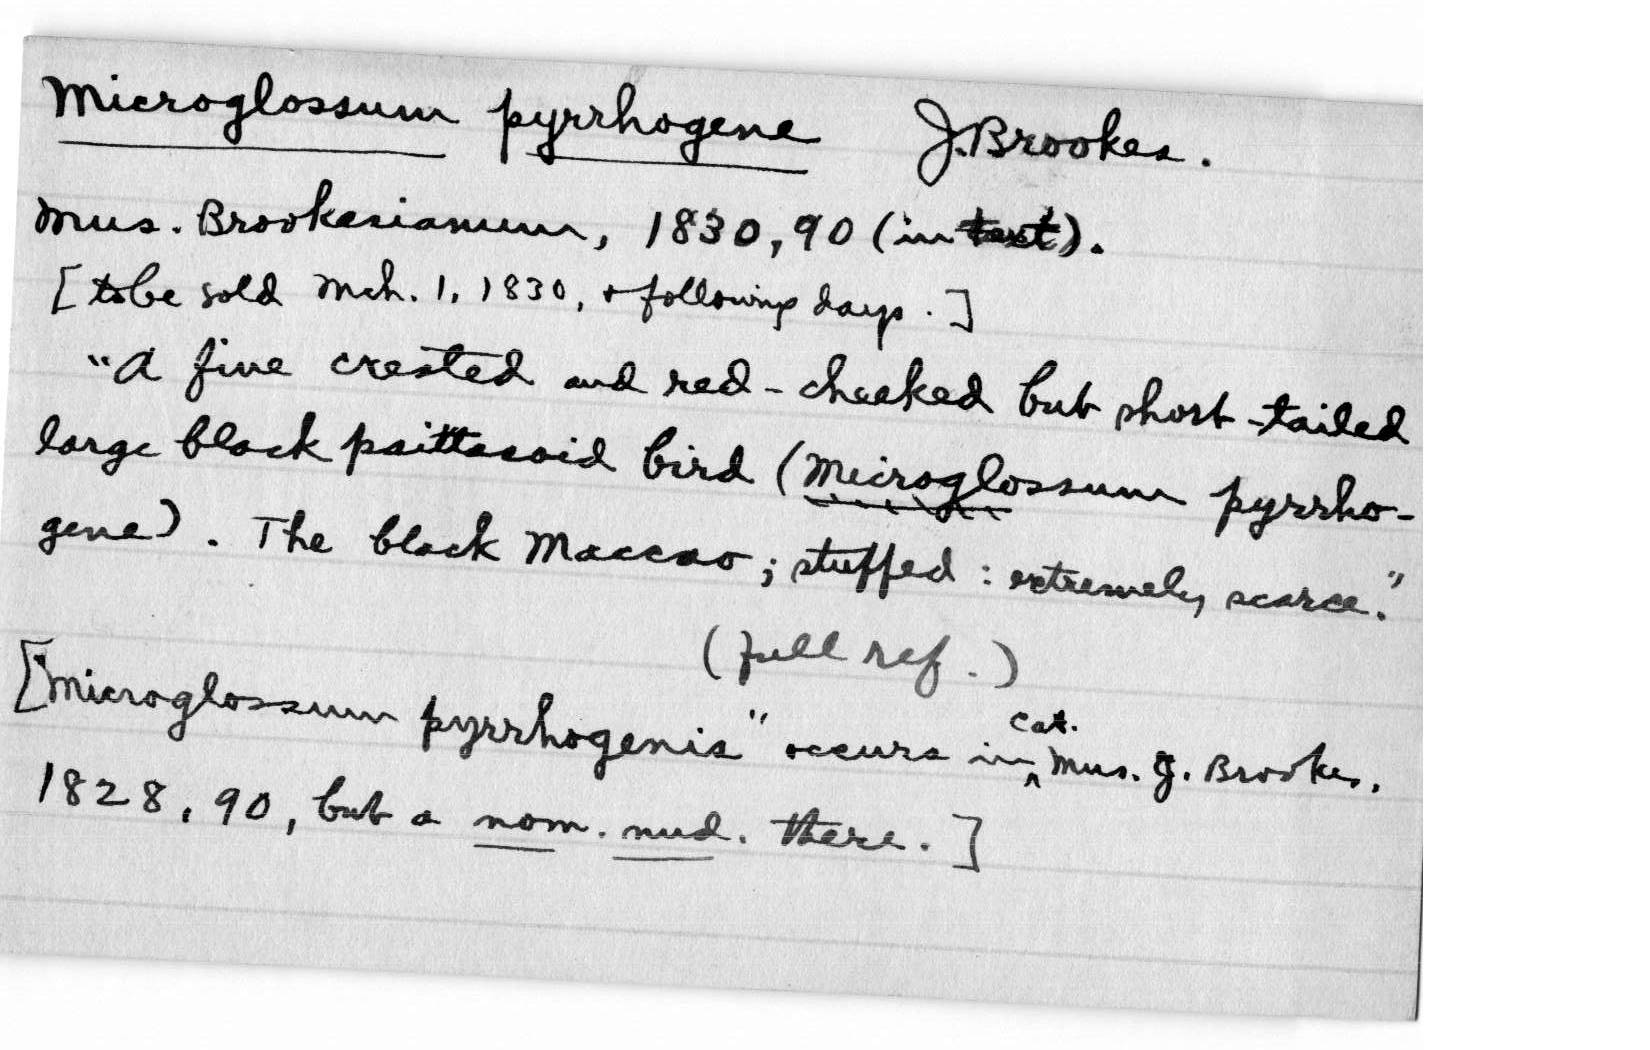 Microglossum pyrrhogene J. Brookes.
Mus. Brookesianum, 1830, 90 (in text).
[to be sold Mch. 1, 1830, & following days.]
"A fine crested and red-cheeked but short-tailed
large black psittacoid bird (Microglossum pyrrho-
gene). The black Maccao; stuffed: extremely scarce."
(full ref.)
["Microglossum pyrrhogenis" occurs in cat. Mus. J. Brookes,
1828, 90, but a nom. nud. there.]